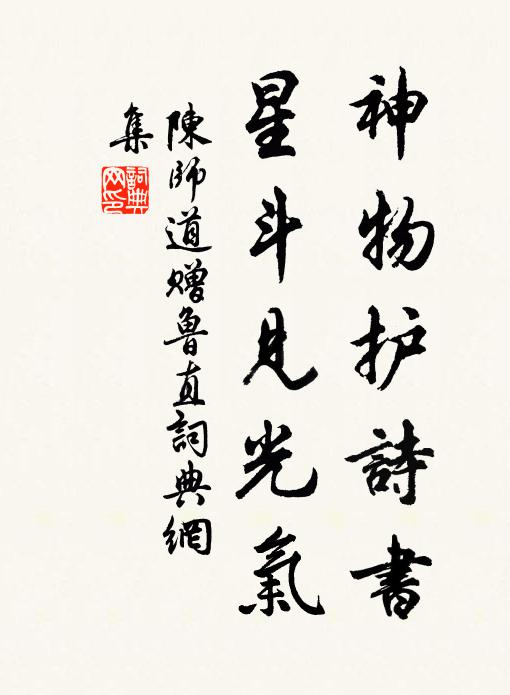 神物护詩書
星斗見光氣
陳師道贈魯直詞典網
集
詞典网印